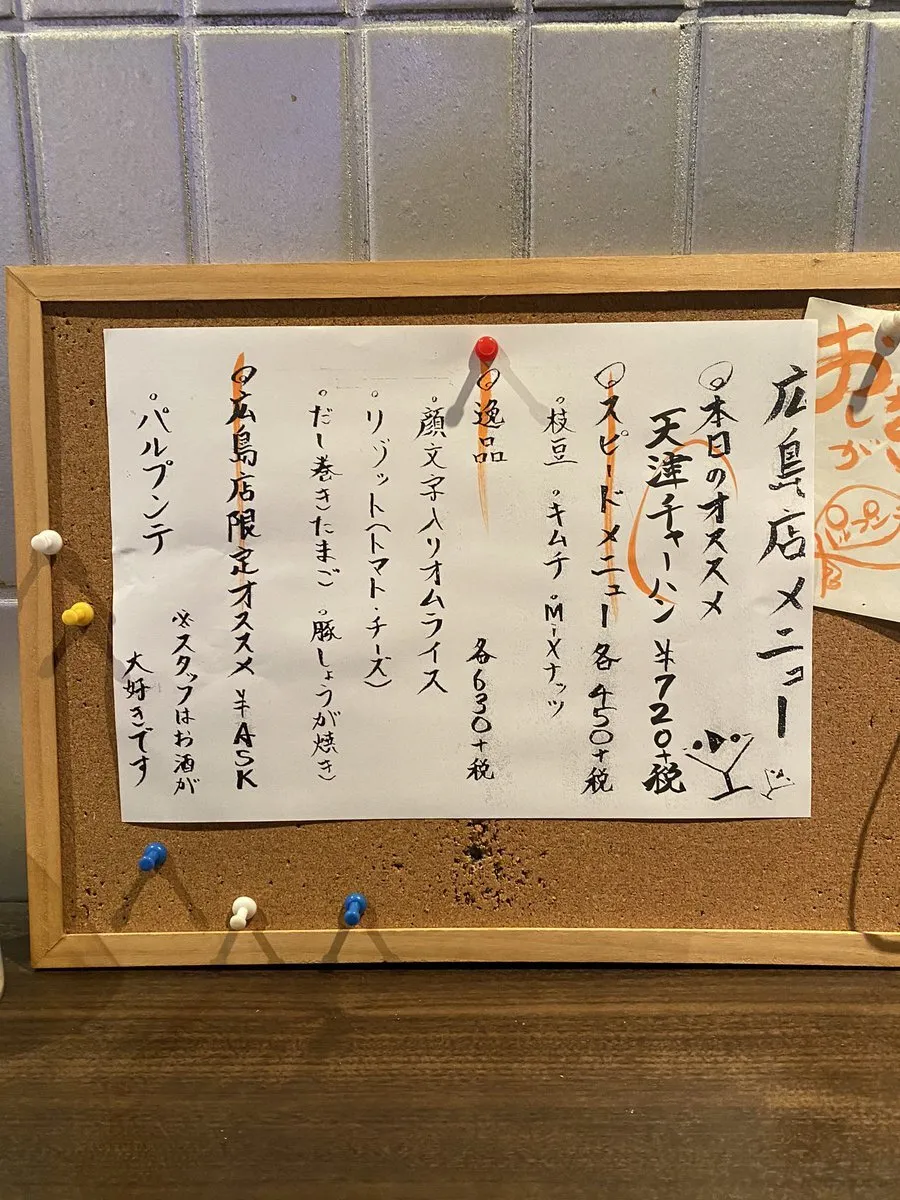 広島店メニュー
◎本日のオススメ
天津チャーハン ¥720+税
◎スピードメニュー 各450+税
。枝豆 。キムチ 。Mixナッツ
◎逸品 各630+税
。顔文字入りオムライス
。リゾット(トマト・チーズ)
。だし巻きたまご 。豚しょうが焼き)
◎広島店限定オススメ ¥ASK
。パルプンテ
※スタッフはお酒が
大好きです